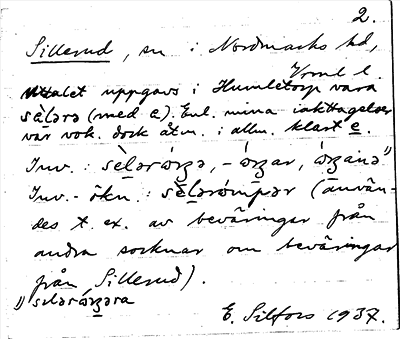 2.
Sillerud, sn i Nordmarks hd,
Vrml l.
Uttalet uppgavs i Humletorp vara
sèl̥ərə (med e). Enl. mina iakttagelser
var vok. dock åtm. i allm. klart e.
Inv. : sèl̥ərórzə, -órzar, órzanə¹⁾
Inv.-ökn. : sèl̥ərómpər (använ-
des t. ex. av beväringar från
andra socknar om beväringar
från Sillerud).
¹⁾ sɛlərórzəra
E. Silfors 1937.